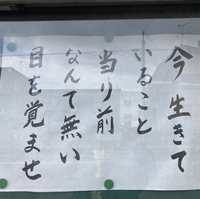 今 生きて
いること
当り前
なんて無い
目を覚ませ